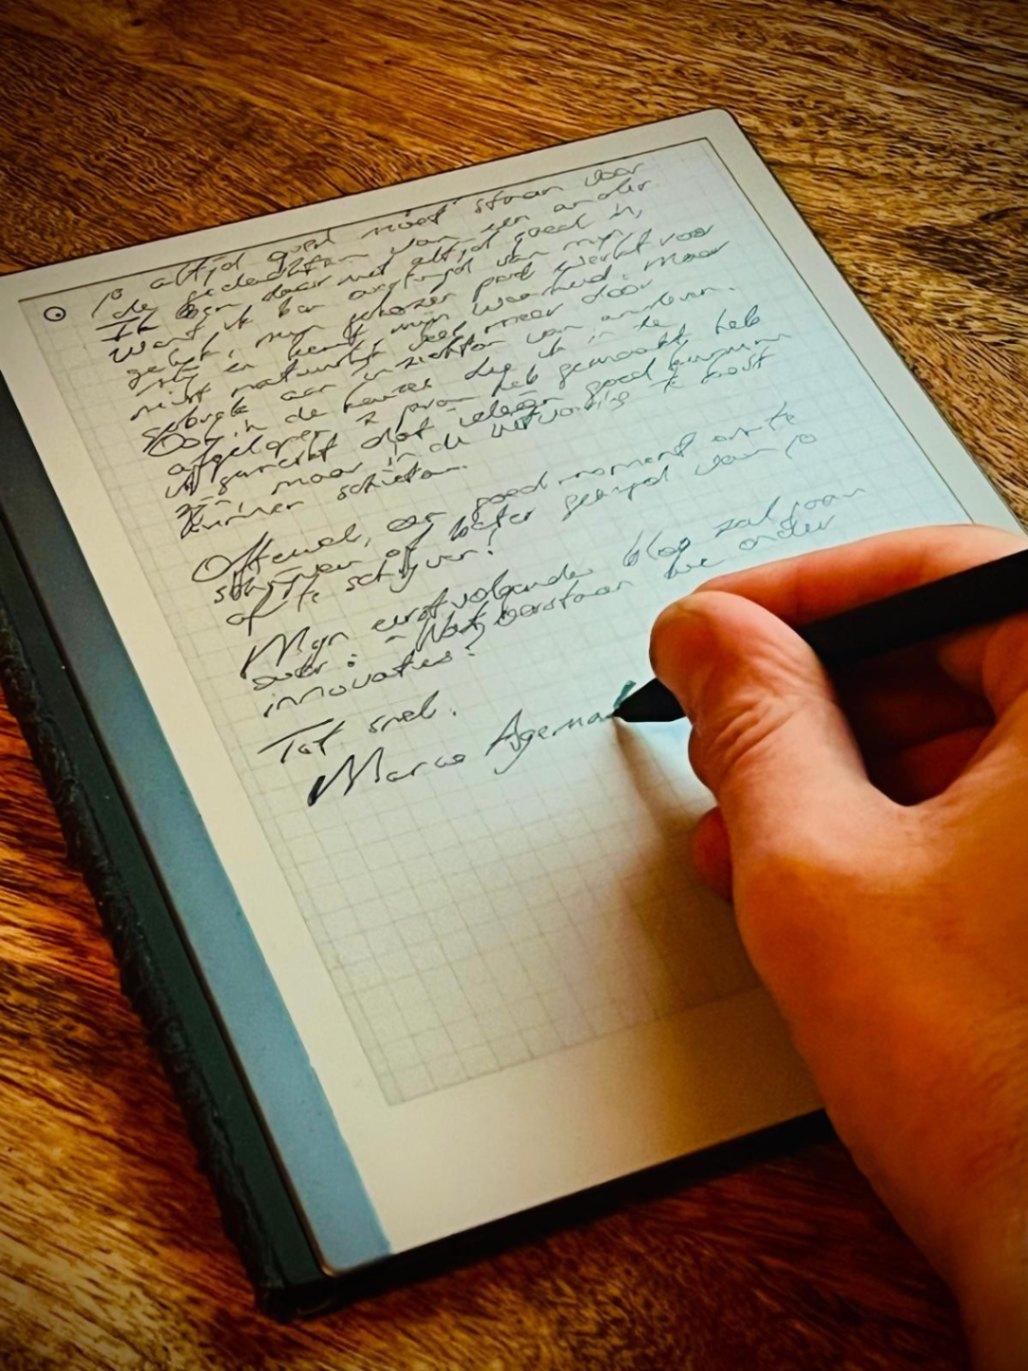 je altijd goed moet staan voor
de gedachten van een ander.
Ik ben daar niet altijd goed in,
want ik ben overtuigd van mijn
gelijk, mijn gekozen pad werkt voor
mij en heeft mijn waarheid. Maar
niet natuurlijk veel meer door
aan inzichten van anderen.
Ook in de keuzes die ik in de
afgelopen 2 jaren heb gemaakt heb
ik gemerkt dat alleen goed
zijn maar in de te kort
kunnen schieten.
Oftewel, een goed moment om te
schrijven of beter gezegd van je
af te schrijven!
Mijn eerstvolgende blog zal gaan
over: Wat verstaan we onder
innovaties?
Tot snel.
Marco Agema